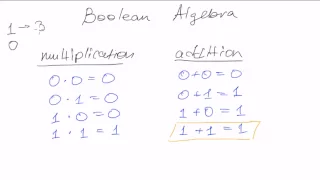 Boolean Algebra
1 → 3
0
multiplication
0 · 0 = 0
0 · 1 = 0
1 · 0 = 0
1 · 1 = 1
addition
0 + 0 = 0
0 + 1 = 1
1 + 0 = 1
1 + 1 = 1